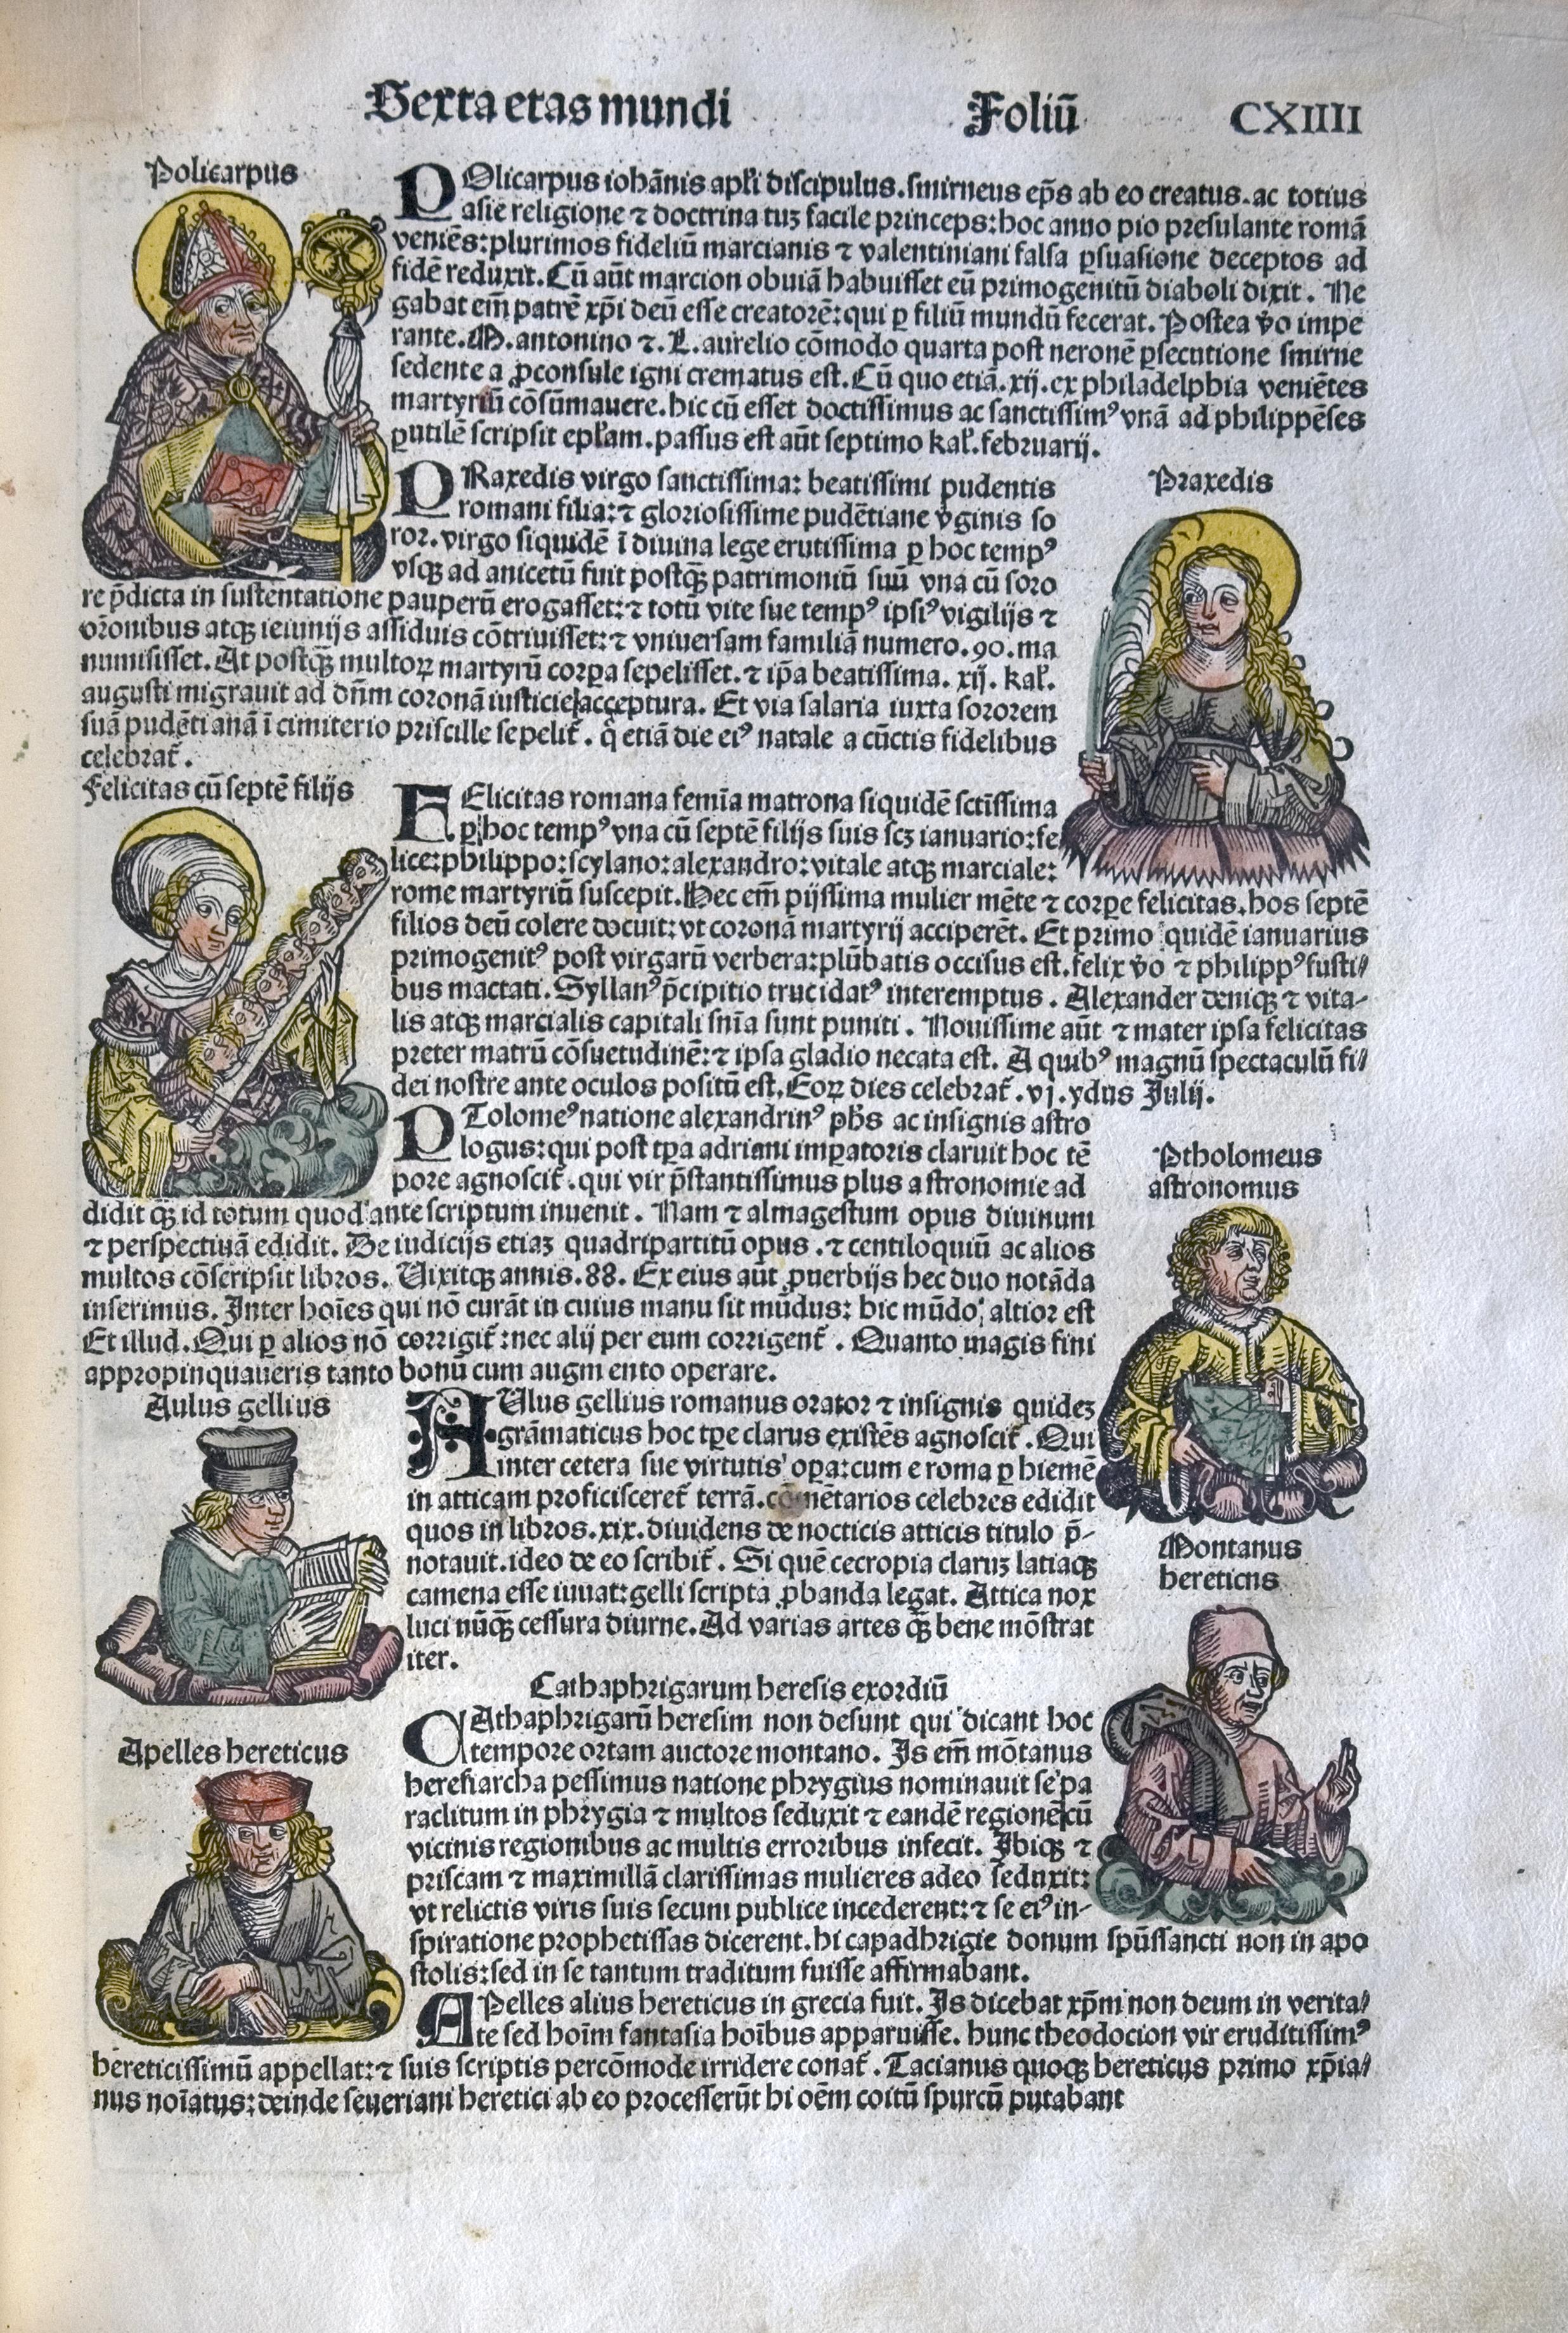 Sexta etas mundi Foliū CXIIII
Policarpus
POlicarpus iohānis apłi discipulus. smirneus ep̄s ab eo creatus. ac totius
asie religione ⁊ doctrina tuꝫ facile princeps: hoc anno pio presulante romā
veniēs: plurimos fideliū marcianis ⁊ valentiniani falsa ꝑsuasione deceptos ad
fidē reduxit. Cū aūt marcion obuiā habuisset eū primogenitū diaboli dixit. Ne
gabat em̄ patrē xp̄i deū esse creatorē: qui ꝑ filiū mundū fecerat. Postea v̄o impe
rante. M. antonino ⁊. L. aurelio cōmodo quarta post neronē ꝑsecutione smirne
sedente a ꝓconsule igni crematus est. Cū quo etiā. xij. ex philadelphia veniētes
martyriū cōsūmauere. hic cū esset doctissimus ac sanctissimꝰ vnā ad philippēses
ꝑutilē scripsit epłam. passus est aūt septimo kał. februarij.
Praxedis
PRaxedis virgo sanctissima: beatissimi pudentis
romani filia: ⁊ gloriosissime pudētiane v̄ginis so
ror. virgo siquidē ī diuina lege erutissima ꝑ hoc tempꝰ
vsqꝫ ad anicetū fuit postqꝫ̄ patrimoniū suū vna cū soro
re p̄dicta in sustentatione pauperū erogasset: ⁊ totū vite sue tempꝰ ipsiꝰ vigilijs ⁊
orōnibus atqꝫ ieiunijs assiduis cōtriuisset: ⁊ vniuersam familiā numero. 90. ma
numisisset. At postqꝫ̄ multoꝝ martyrū corꝑa sepelisset. ⁊ ip̄a beatissima. xij. kał.
augusti migrauit ad dn̄m coronā iusticie acceptura. Et via salaria iuxta sororem
suā pudētianā ī cimiterio priscille sepelit̄. q̄ etiā die eiꝰ natale a cūctis fidelibus
celebrat̄.
Felicitas cū septē filijs
FElicitas romana femīa matrona siquidē sctīssima
ꝑ hoc tempꝰ vna cū septē filijs suis scꝫ ianuario: fe
lice: philippo: scylano: alexandro: vitale atqꝫ marciale:
rome martyriū suscepit. Hec em̄ pijssima mulier mēte ⁊ corꝑe felicitas. hos septē
filios deū colere docuit: vt coronā martyrij acciperēt. Et primo quidē ianuarius
primogenitꝰ post virgarū verbera: plūbatis occisus est. felix v̄o ⁊ philippꝰ fusti/
bus mactati. Syllanꝰ p̄cipitio trucidatꝰ interemptus. Alexander deniqꝫ ⁊ vita-
lis atqꝫ marcialis capitali sn̄ia sunt puniti. Nouissime aūt ⁊ mater ipsa felicitas
preter matrū cōsuetudinē: ⁊ ipsa gladio necata est. A quibꝰ magnū spectaculū fi/
dei nostre ante oculos positū est. Eoꝝ dies celebrat̄. vj. ydus Julij.
PTolomeꝰ natione alexandrinꝰ ph̄s ac insignis astro
logus: qui post tꝑa adriani imꝑatoris claruit hoc tē
pore agnoscit̄. qui vir p̄stantissimus plus astronomie ad
didit qꝫ̄ id totum quod ante scriptum inuenit. Nam ⁊ almagestum opus diuinum
⁊ perspectiuā edidit. De iudicijs etiaꝫ quadripartitū opus. ⁊ centiloquiū ac alios
multos cōscripsit libros. Uixitqꝫ annis. 88. Ex eius aūt ꝓuerbijs hec duo notāda
inserimus. Inter hoīes qui nō curāt in cuius manu sit mūdus: hic mūdo altior est
Et illud. Qui ꝑ alios nō corrigit̄: nec alij per eum corrigent̄. Quanto magis fini
appropinquaueris tanto bonū cum augmento operare.
Ptholomeus
astronomus
Aulus gellius
AUlus gellius romanus orator ⁊ insignis quideꝫ
grāmaticus hoc tꝑe clarus existēs agnoscit̄. Qui
inter cetera sue virtutis oꝑa: cum e roma ꝑ hiemē
in atticam proficisceret̄ terrā. cōmētarios celebres edidit
quos in libros. xix. diuidens de nocticis atticis titulo p̄-
notauit. ideo de eo scribit̄. Si quē cecropia claruꝫ latiaqꝫ
camena esse iuuat: gelli scripta ꝓbanda legat. Attica nox
luci nūqꝫ̄ cessura diurne. Ad varias artes qꝫ̄ bene mōstrat
iter.
Montanus
hereticus
Cathaphrigarum heresis exordiū
CAthaphrigarū heresim non desunt qui dicant hoc
tempore ortam auctore montano. Is em̄ mōtanus
heresiarcha pessimus natione phrygius nominauit se pa
raclitum in phrygia ⁊ multos seduxit ⁊ eandē regionē cū
vicinis regionibus ac multis erroribus infecit. Ibiqꝫ ⁊
priscam ⁊ maximillā clarissimas mulieres adeo seduxit:
vt relictis viris suis secum publice incederent: ⁊ se eiꝰ in-
spiratione prophetissas dicerent. hi capadhrigie donum spūssancti non in apo
stolis: sed in se tantum traditum fuisse affirmabant.
Apelles hereticus
APelles alius hereticus in grecia fuit. Is dicebat xp̄m non deum in verita/
te sed hoīm fantasia hoībus apparuisse. hunc theodocion vir eruditissimꝰ
hereticissimū appellat: ⁊ suis scriptis percōmode irridere conat̄. Tacianus quoqꝫ hereticus primo xp̄ia/
nus noīatus: deinde seueriani heretici ab eo processerūt hi oēm coitū spurcū putabant